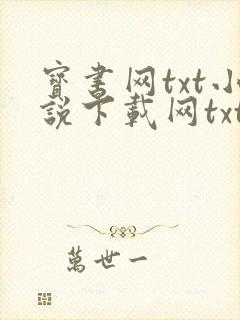 寳書网txt小
説下載网txt
萬世一